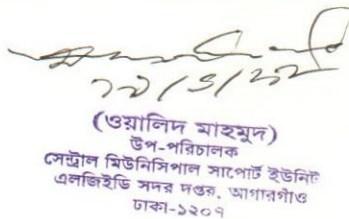 (ওয়ালিদ মাহমুদ)
উপ-পরিচালক
সেন্ট্রাল মিউনিসিপাল সাপোর্ট ইউনিট
এলজিইডি সদর দপ্তর, আগারগাঁও
ঢাকা-১২০৭